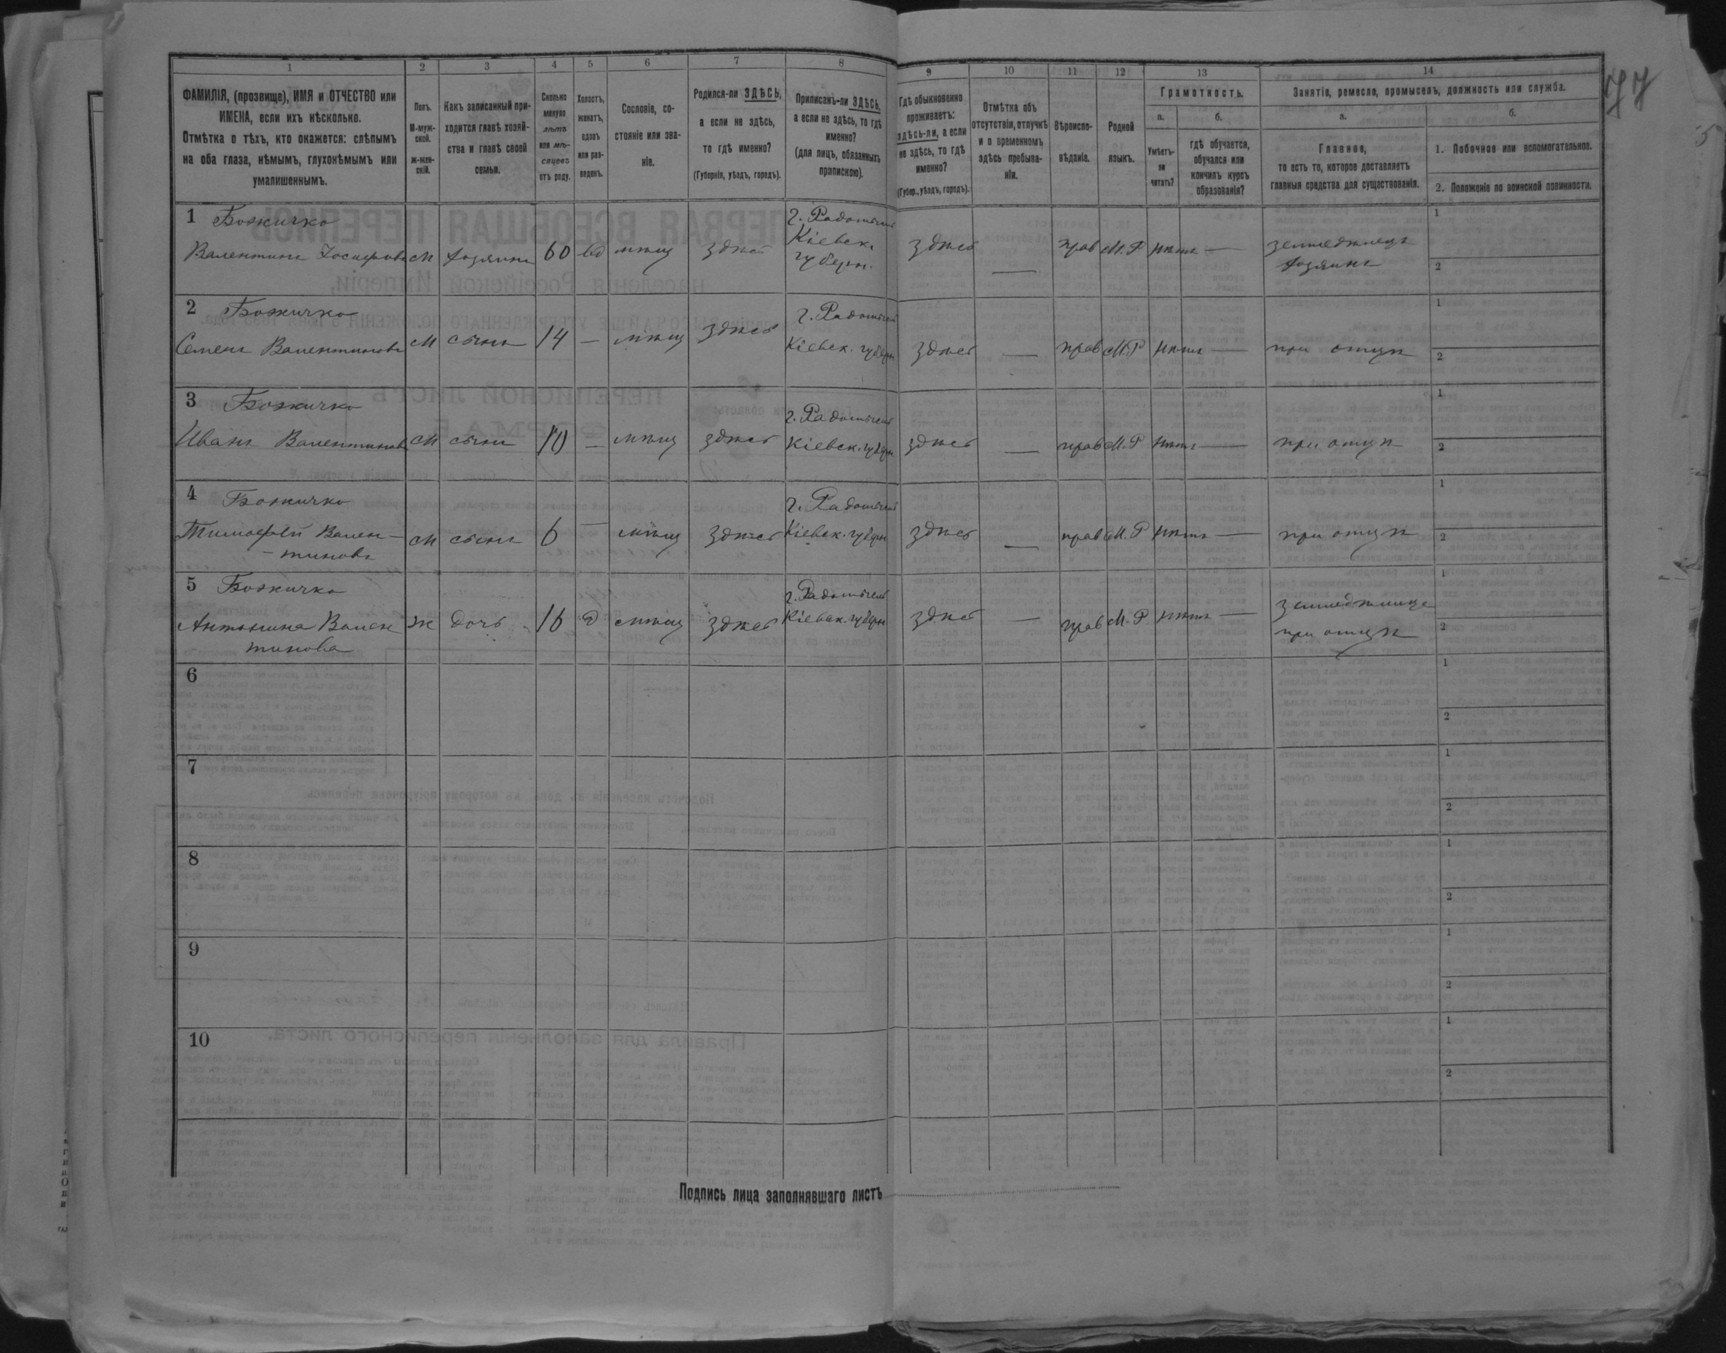 1 2 3 4 5 6 7 8 9 10 11 12 13 14
ФАМИЛІЯ, (прозвище), ИМЯ и ОТЧЕСТВО или
ИМЕНА, если ихъ нѣсколько.
Отмѣтка о тѣхъ, кто окажется: слѣпымъ
на оба глаза, нѣмымъ, глухонѣмымъ или
умалишеннымъ.
Полъ.
М-муж-
ской.
ж-жен-
скій.
Какъ записанный при-
ходится главѣ хозяй-
ства и главѣ своей
семьи.
Сколько
минуло
лѣтъ
или мѣ-
сяцевъ
отъ роду.
Холостъ,
женатъ,
вдовъ
или раз-
веденъ.
Сословіе, со-
стояніе или зва-
ніе.
Родился-ли ЗДѢСЬ,
а если не здѣсь,
то гдѣ именно?
(Губернія, уѣздъ, городъ).
Приписанъ-ли ЗДѢСЬ,
а если не здѣсь, то гдѣ
именно?
(для лицъ, обязанныхъ
припискою).
Гдѣ обыкновенно
проживаетъ:
здѣсь-ли, а если
не здѣсь, то гдѣ
именно?
(Губер., уѣздъ, городъ).
Отмѣтка объ
отсутствіи, отлучкѣ
и о временномъ
здѣсь пребыва-
ніи.
Вѣроиспо-
вѣданіе.
Родной
языкъ.
Грамотность.
а.
Умѣетъ-
ли
читать?
б.
гдѣ обучается,
обучался или
кончилъ курсъ
образованія?
Занятіе, ремесло, промыселъ, должность или служба.
а.
Главное,
то есть то, которое доставляетъ
главныя средства для существованія.
б.
1. Побочное или вспомогательное.
2. Положеніе по воинской повинности.
77
1 Божичко
Валентинъ м хозяинъ 60 вд мѣщ здѣсь
г. Радомысль
Кіевск.
губерн.
здѣсь — прав М.Р нѣтъ —
земледѣлецъ
хозяинъ
1
2
2 Божичко
Семенъ Валентиновъ м сынъ 14 — мѣщ здѣсь
г. Радомысль
Кіевск. губерн
здѣсь — прав М.Р нѣтъ — при отцѣ
1
2
3 Божичко
Иванъ Валентиновъ м сынъ 10 — мѣщ здѣсь
г. Радомысль
Кіевск. губерн
здѣсь — прав М.Р нѣтъ — при отцѣ
1
2
4 Божичко
Тимофѣй Вален-
-тиновъ
м сынъ 6 — мѣщ здѣсь
г. Радомысль
Кіевск. губерн
здѣсь — прав М.Р нѣтъ — при отцѣ
1
2
5 Божичко
Антонина Вален
тинова
ж дочь 16 Д мѣщ здѣсь
г. Радомысль
Кіевск. губерн
здѣсь — прав М.Р нѣтъ —
при отцѣ
1
2
6
1
2
7
1
2
8
1
2
9
1
2
10
1
2
Подпись лица заполнявшаго листъ